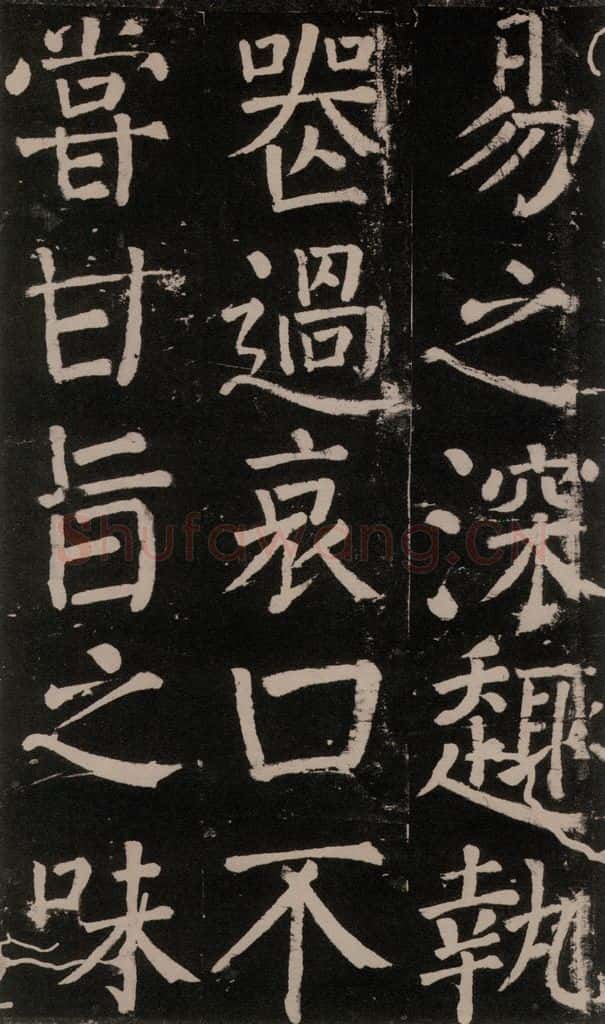 易之深趣執
喪過哀口不
甞甘旨之味
Shufawang.CN